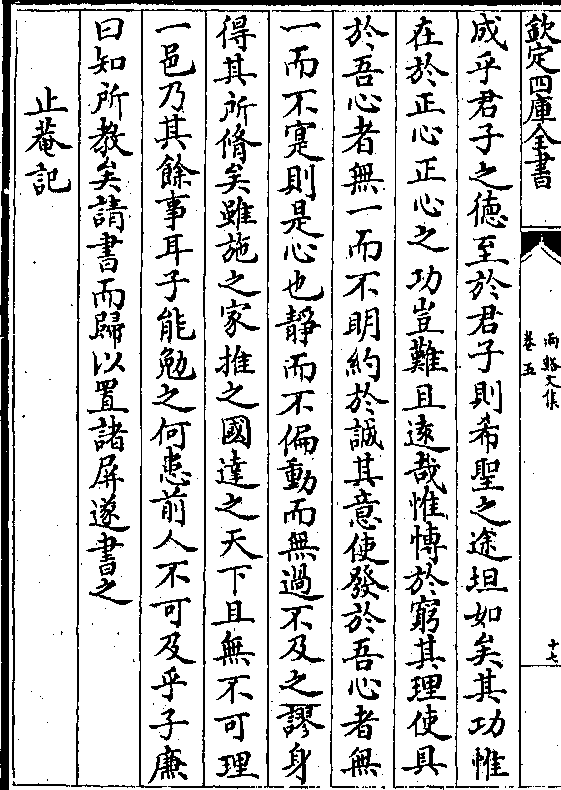 欽定四庫全書
兩谿文集
卷五
十七
成乎君子之德至於君子則希聖之途坦如矣其功惟
在於正心正心之功豈難且遠哉惟博於窮其理使具
於吾心者無一而不明約於誠其意使發於吾心者無
一而不寔則是心也靜而不偏動而無過不及之謬身
得其所脩矣雖施之家推之國達之天下且無不可理
一邑乃其餘事耳子能勉之何患前人不可及乎子廉
曰知所教矣請書而歸以置諸屏遂書之
止菴記